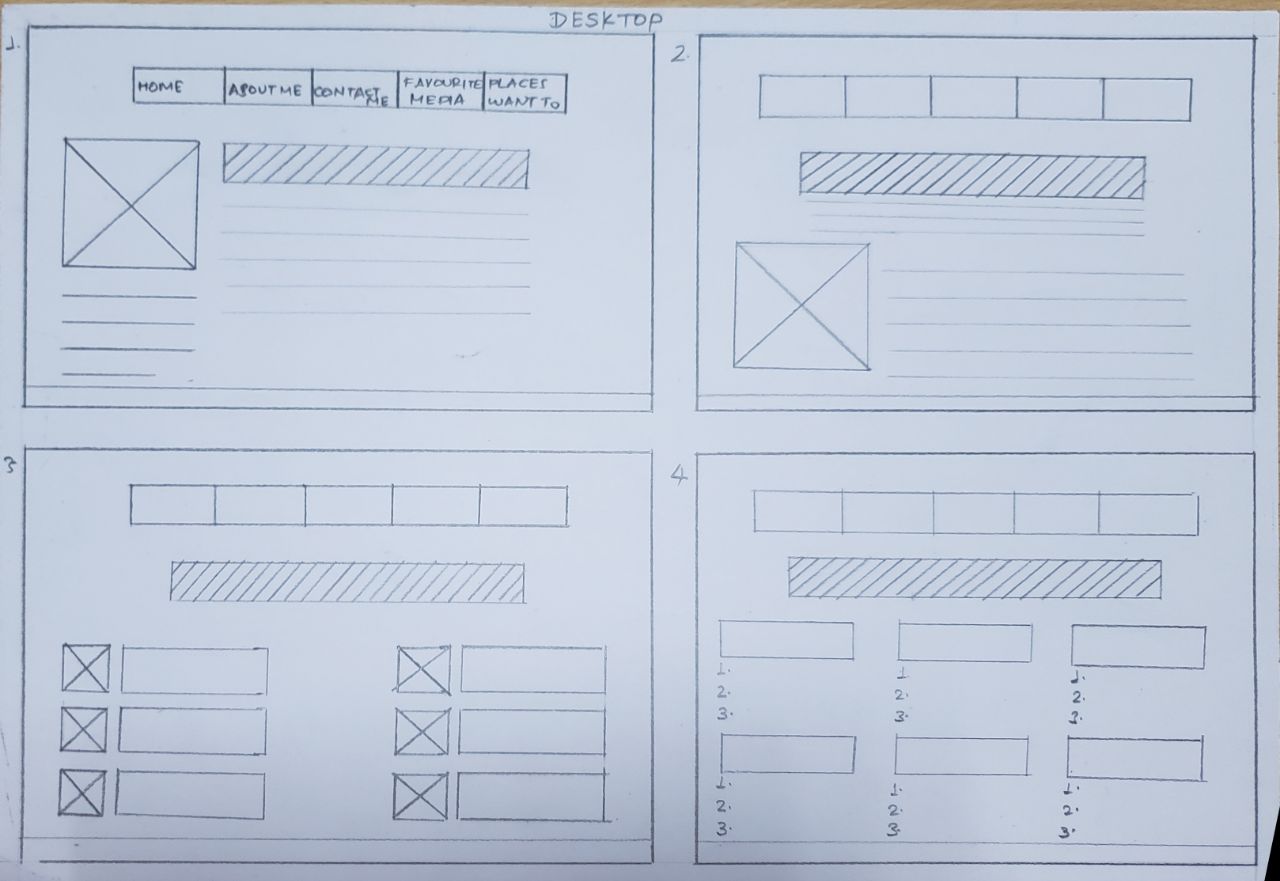 DESKTOP
1.
HOME
ABOUT ME
CONTACT
ME
FAVOURITE
MEDIA
PLACES
WANT TO
2.
3
4
1.
2.
3.
1
2.
3.
1.
2.
3.
1.
2.
3.
1.
2.
3.
1.
2.
3.